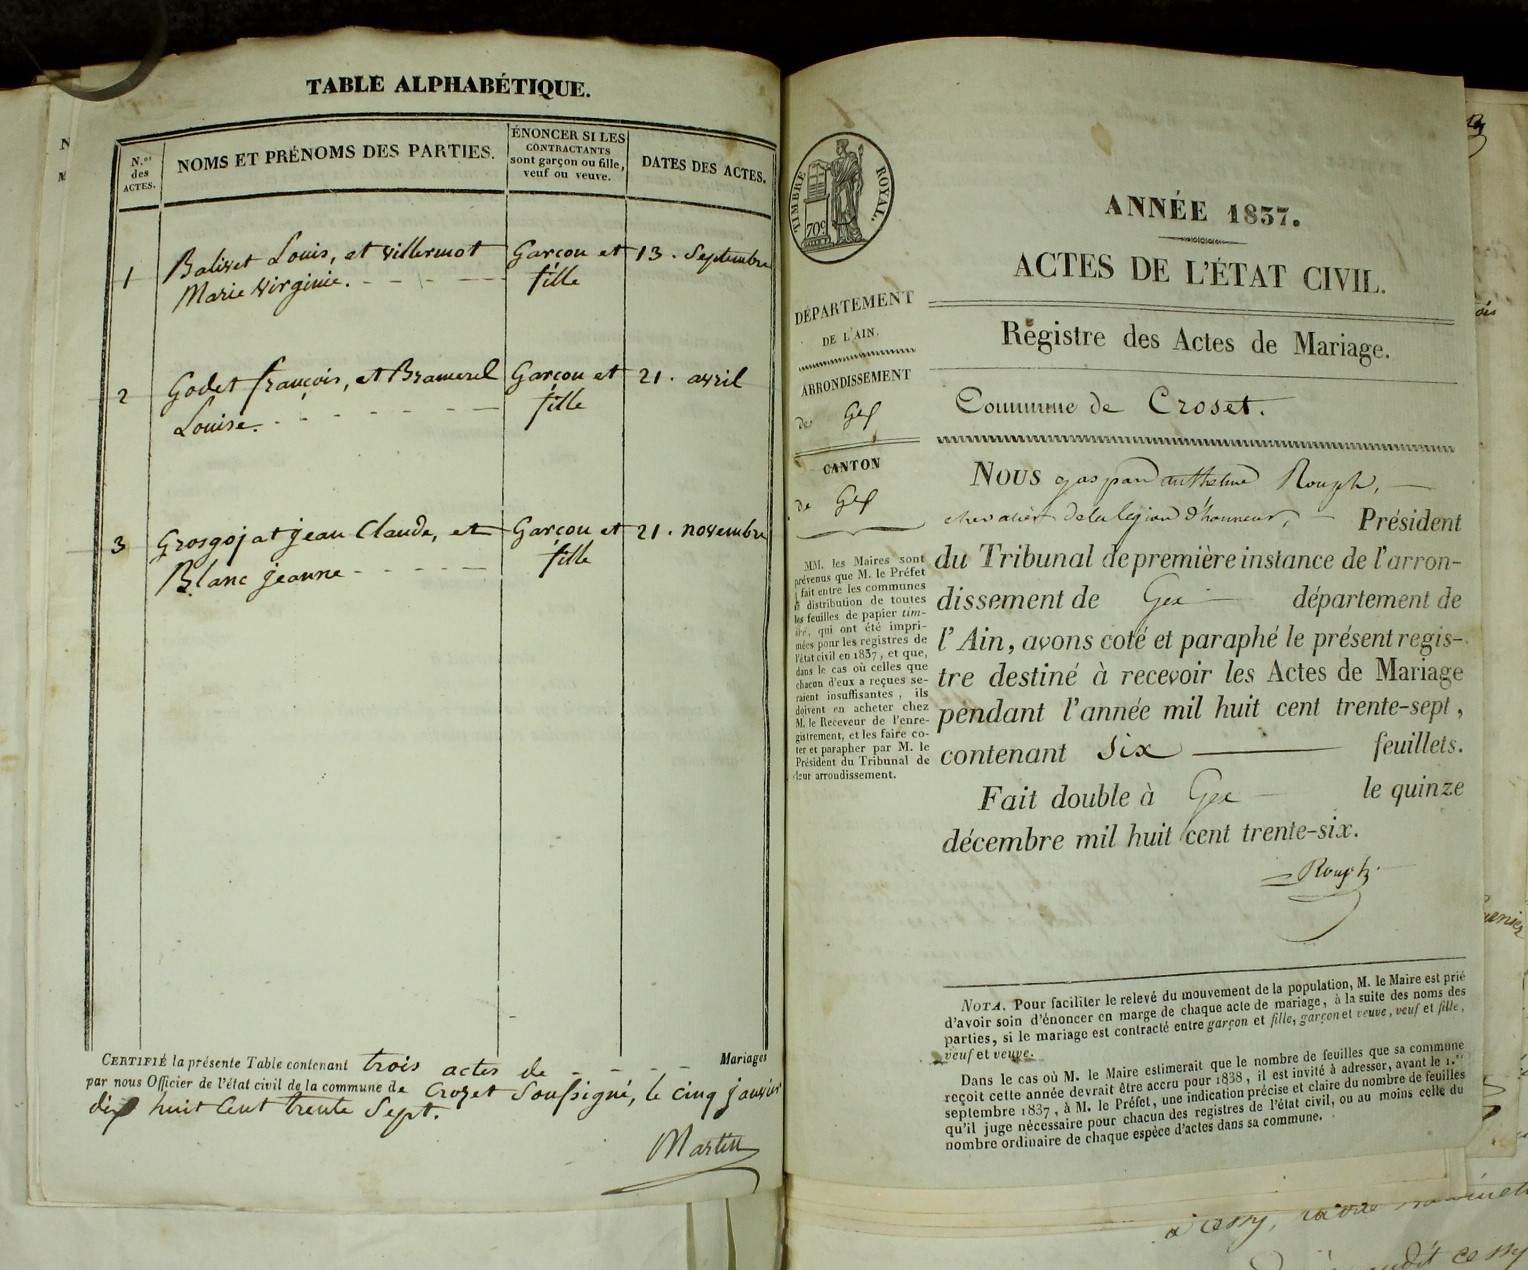 TABLE ALPHABÉTIQUE.
N.os des ACTES.
NOMS ET PRÉNOMS DES PARTIES.
ÉNONCER SI LES
CONTRACTANTS
sont garçon ou fille,
veuf ou veuve.
DATES DES ACTES.
1 Balivet Louis, et Villermot Garçon et 13. Septembre
Marie Virginie. fille
2 Godet françois, et Bramerel Garçon et 21. avril
Louise. fille
3 Grosgojat jean Claude, et Garçon et 21. novembre
Blanc jeanne fille
CERTIFIÉ la présente Table contenant trois actes de Mariages
par nous Officier de l'état civil de la commune de Crozet Soussigné, le cinq janvier
dix huit Cent trente Sept.
Martin
TIMBRE ROYAL.
70c
DÉPARTEMENT
DE L'AIN.
ARRONDISSEMENT
de Gex
CANTON
de Gex
MM. les Maires sont
prévenus que M. le Préfet
fait entre les communes
la distribution de toutes
les feuilles de papier tim-
bré, qui ont été impri-
mées pour les registres de
l'état civil en 1837, et que,
dans le cas où celles que
chacun d'eux a reçues se-
raient insuffisantes, ils
doivent en acheter chez
M. le Receveur de l'enre-
gistrement, et les faire co-
ter et parapher par M. le
Président du Tribunal de
leur arrondissement.
ANNÉE 1837.
ACTES DE L'ÉTAT CIVIL.
Régistre des Actes de Mariage.
Commune de Croset.
NOUS gaspard anthelme Rouph,
chevalier de la légion d'honneur, Président
du Tribunal de première instance de l'arron-
dissement de Gex département de
l'Ain, avons coté et paraphé le présent regis-
tre destiné à recevoir les Actes de Mariage
pendant l'année mil huit cent trente-sept,
contenant six feuillets.
Fait double à Gex le quinze
décembre mil huit cent trente-six.
Rouph
NOTA. Pour faciliter le relevé du mouvement de la population, M. le Maire est prié
d'avoir soin d'énoncer en marge de chaque acte de mariage, à la suite des noms des
parties, si le mariage est contracté entre garçon et fille, garçon et veuve, veuf et fille,
veuf et veuve.
Dans le cas où M. le Maire estimerait que le nombre de feuilles que sa commune
reçoit cette année devrait être accru pour 1838, il est invité à adresser, avant le 1.er
septembre 1837, à M. le Préfet, une indication précise et claire du nombre de feuilles
qu'il juge nécessaire pour chacun des registres de l'état civil, ou au moins celle du
nombre ordinaire de chaque espèce d'actes dans sa commune.